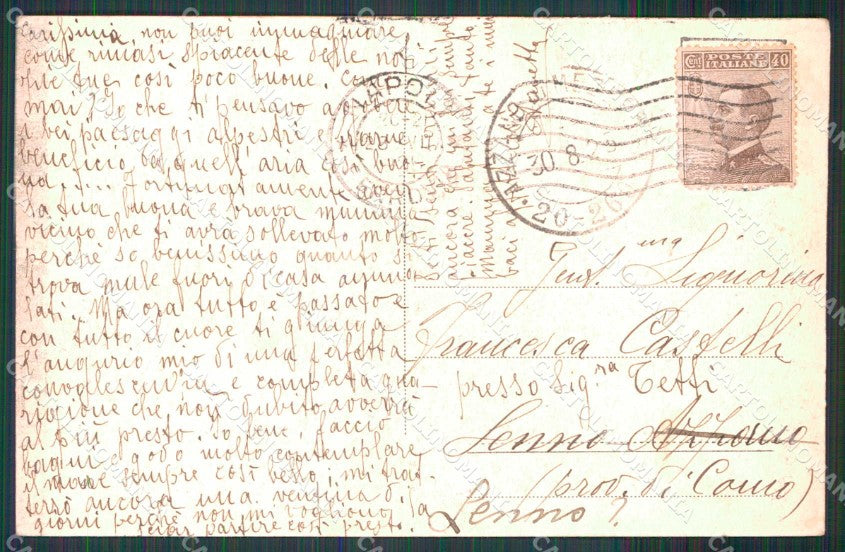 Carissima, non puoi immaginare
come rimasi spiacente delle no-
tizie tue così poco buone. Con
mari? Io che ti pensavo a godere
i bei paesaggi alpestri e trarne
beneficio da quell'aria così buo
na..... Fortunatamente avevi
la tua buona e brava mamma
vicino che ti avrà sollevato molto
perchè so benissimo quanto si
trova male fuori di casa ammalati
lati. Ma ora tutto è passato e
con tutto il cuore ti giunga
l'augurio mio di una perfetta
convalescenza e completa gua-
rigione che non dubito avverrà
al più presto. Io bene, faccio
bagni, godo molto contemplare
il mare sempre così bello, mi trat-
terrò ancora una ventina di
giorni perchè non mi vogliono
lasciar partire così presto.
ancora
piacere. Saluta la tanto
Mamma a te i miei
baci
NAPOLI
AZZANO
30.8.
20-20
POSTE
ITALIANE
Cent 40
Gent.ma Signorina
Francesca Castelli
presso Sig.ra Tetti
Lenno Azzano
(prov. di Como)
Lenno?
CARTOLINOMANIA